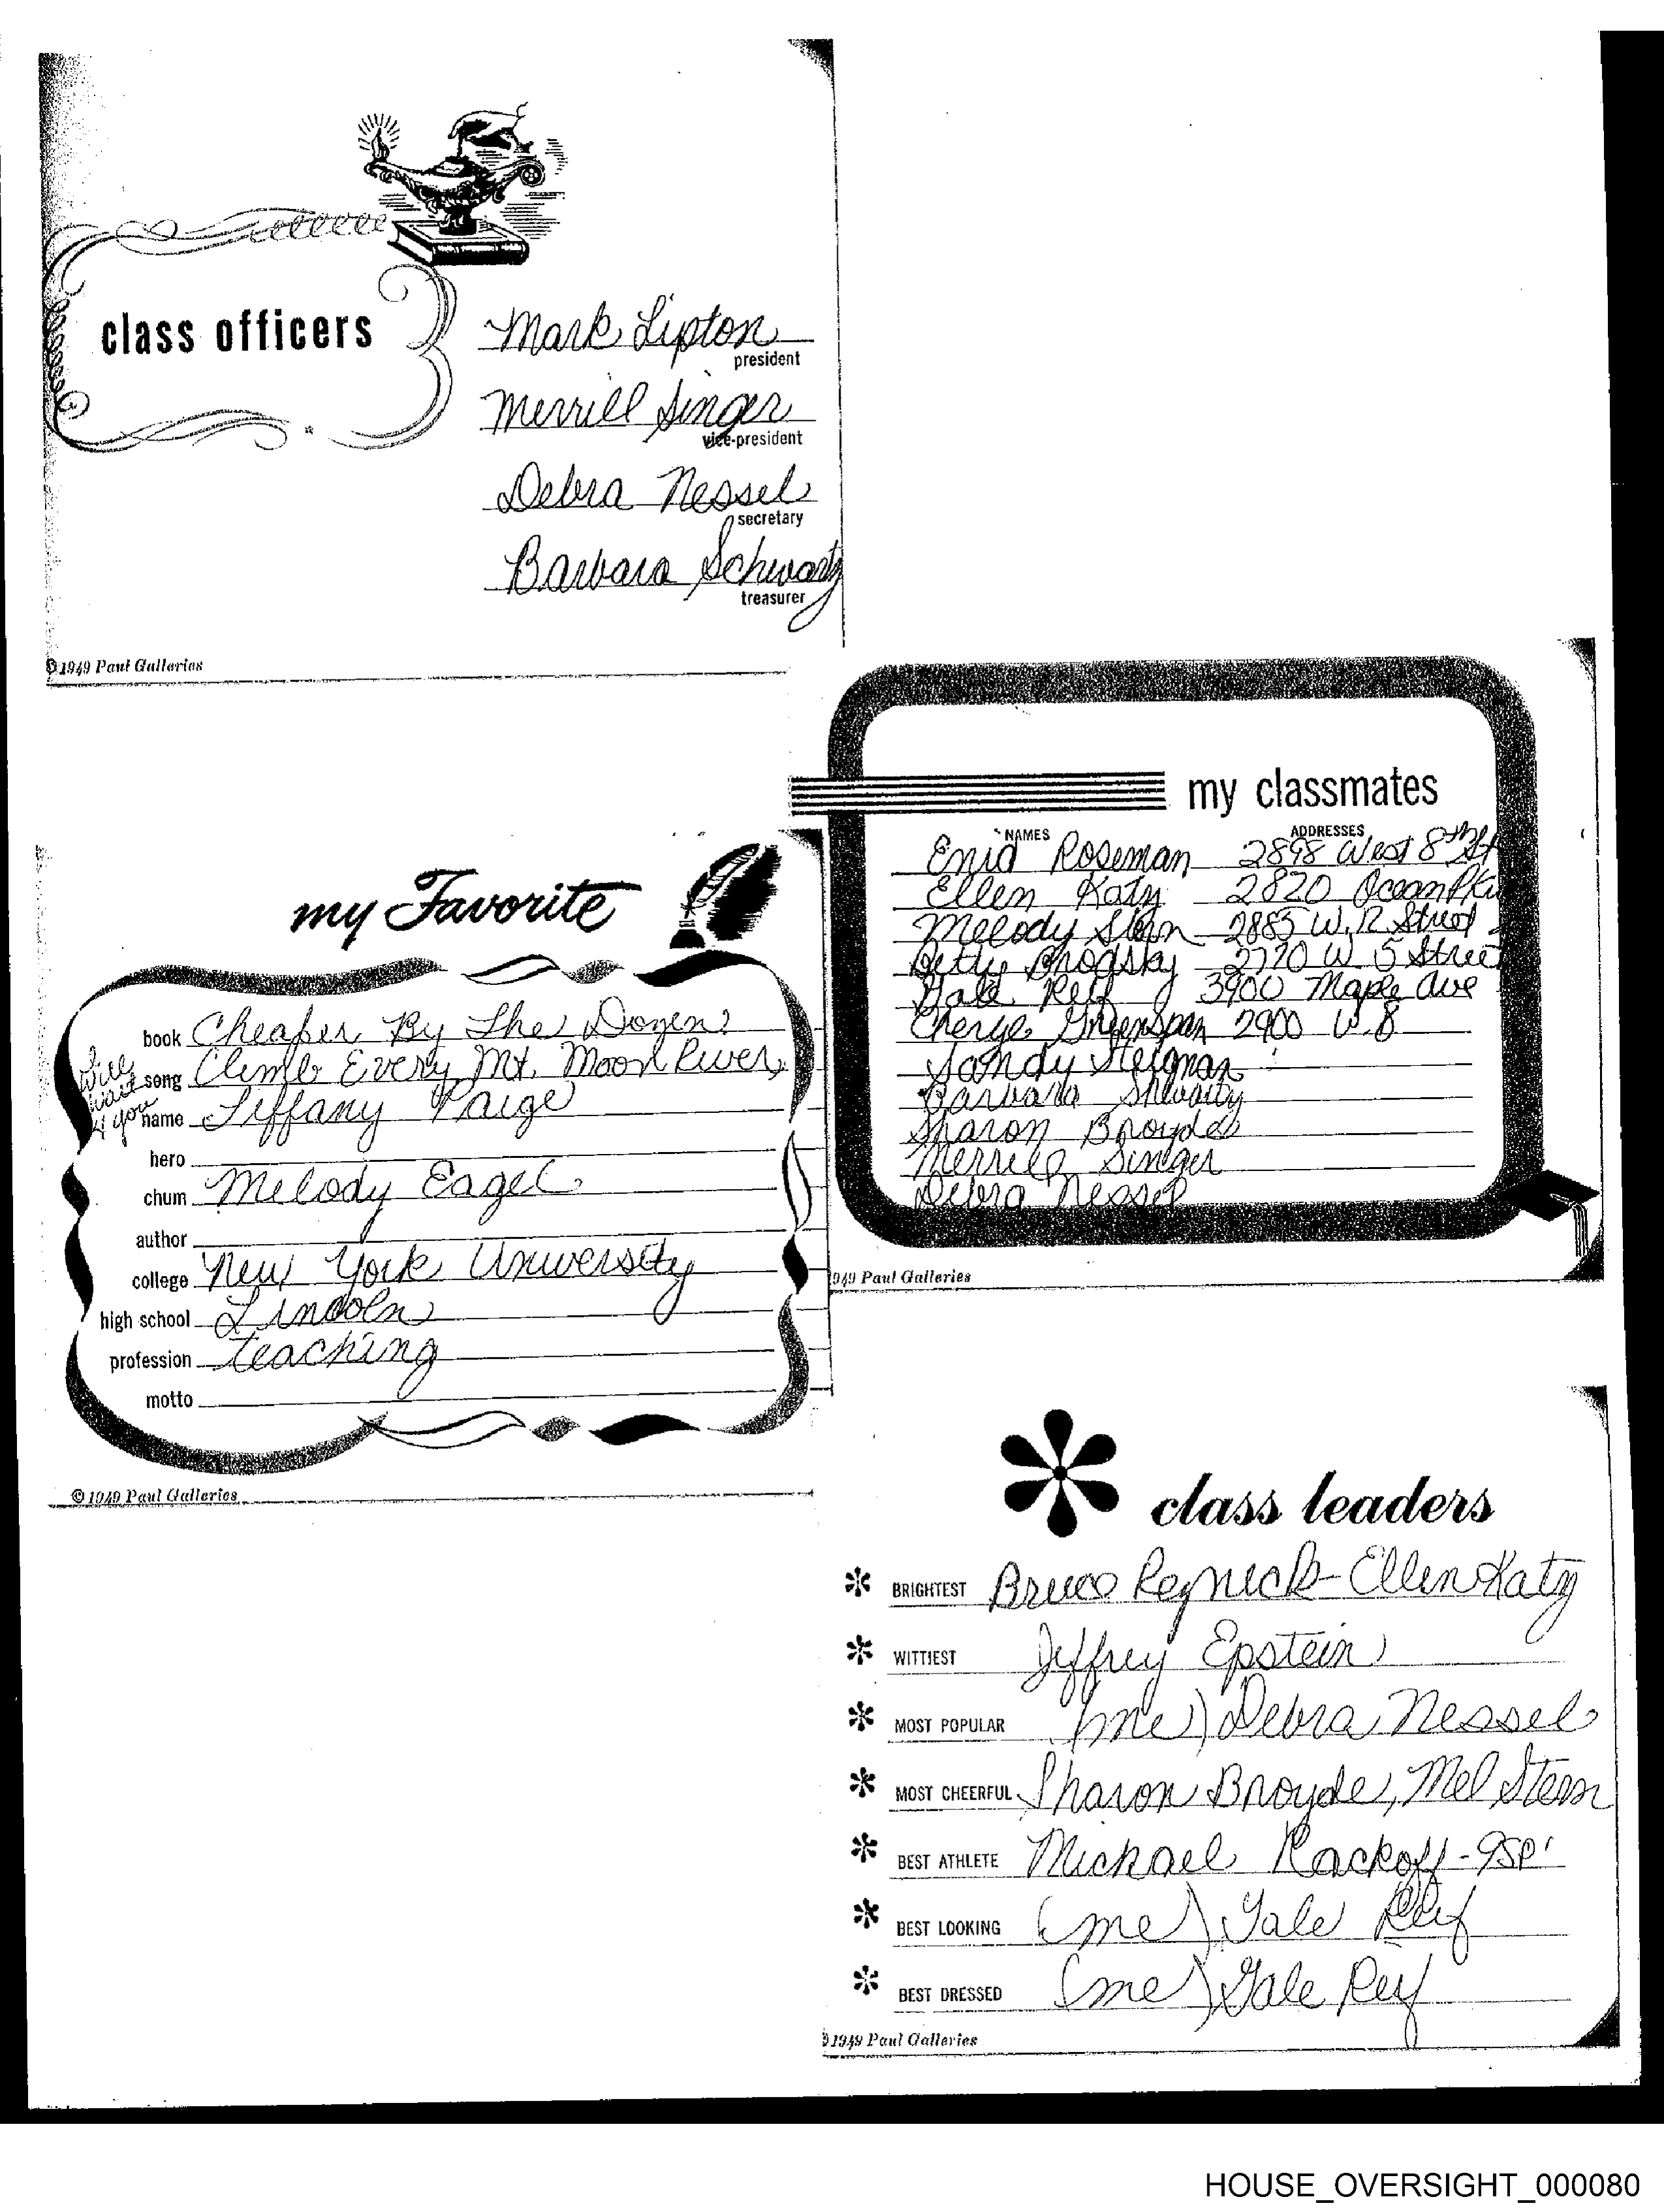 class officers
Mark Lipton
president
Merrill Singer
vice-president
Debra Nessel
secretary
Barbara Schwartz
treasurer
© 1949 Paul Galleries
my classmates
NAMES ADDRESSES
Enid Roseman 2898 West 8th St
Ellen Katz 2820 Ocean Pkw
Melody Stern 2885 W. 12 Street
Betty Brodsky 2770 W 5 Street
Gale Reif 3900 Maple Ave
Cheryl Greenspan 2900 W. 8
Sandy
Barbara
Sharon Broyde
Merrill Singer
Debra Nessel
949 Paul Galleries
my Favorite
book Cheaper By The Dozen
song Climb Every Mt. Moon River,
Will wait 4 you
name Tiffany Paige
hero
chum Melody Eagel
author
college New York University
high school Lincoln
profession teaching
motto
© 1949 Paul Galleries
class leaders
BRIGHTEST Bruce Reznick - Ellen Katz
WITTIEST Jeffrey Epstein
MOST POPULAR (me) Debra Nessel
MOST CHEERFUL Sharon Broyde, Mel Stern
BEST ATHLETE Michael Rackoff - 9SP'
BEST LOOKING (me) Gale Reif
BEST DRESSED (me) Gale Reif
1949 Paul Galleries
HOUSE_OVERSIGHT_000080